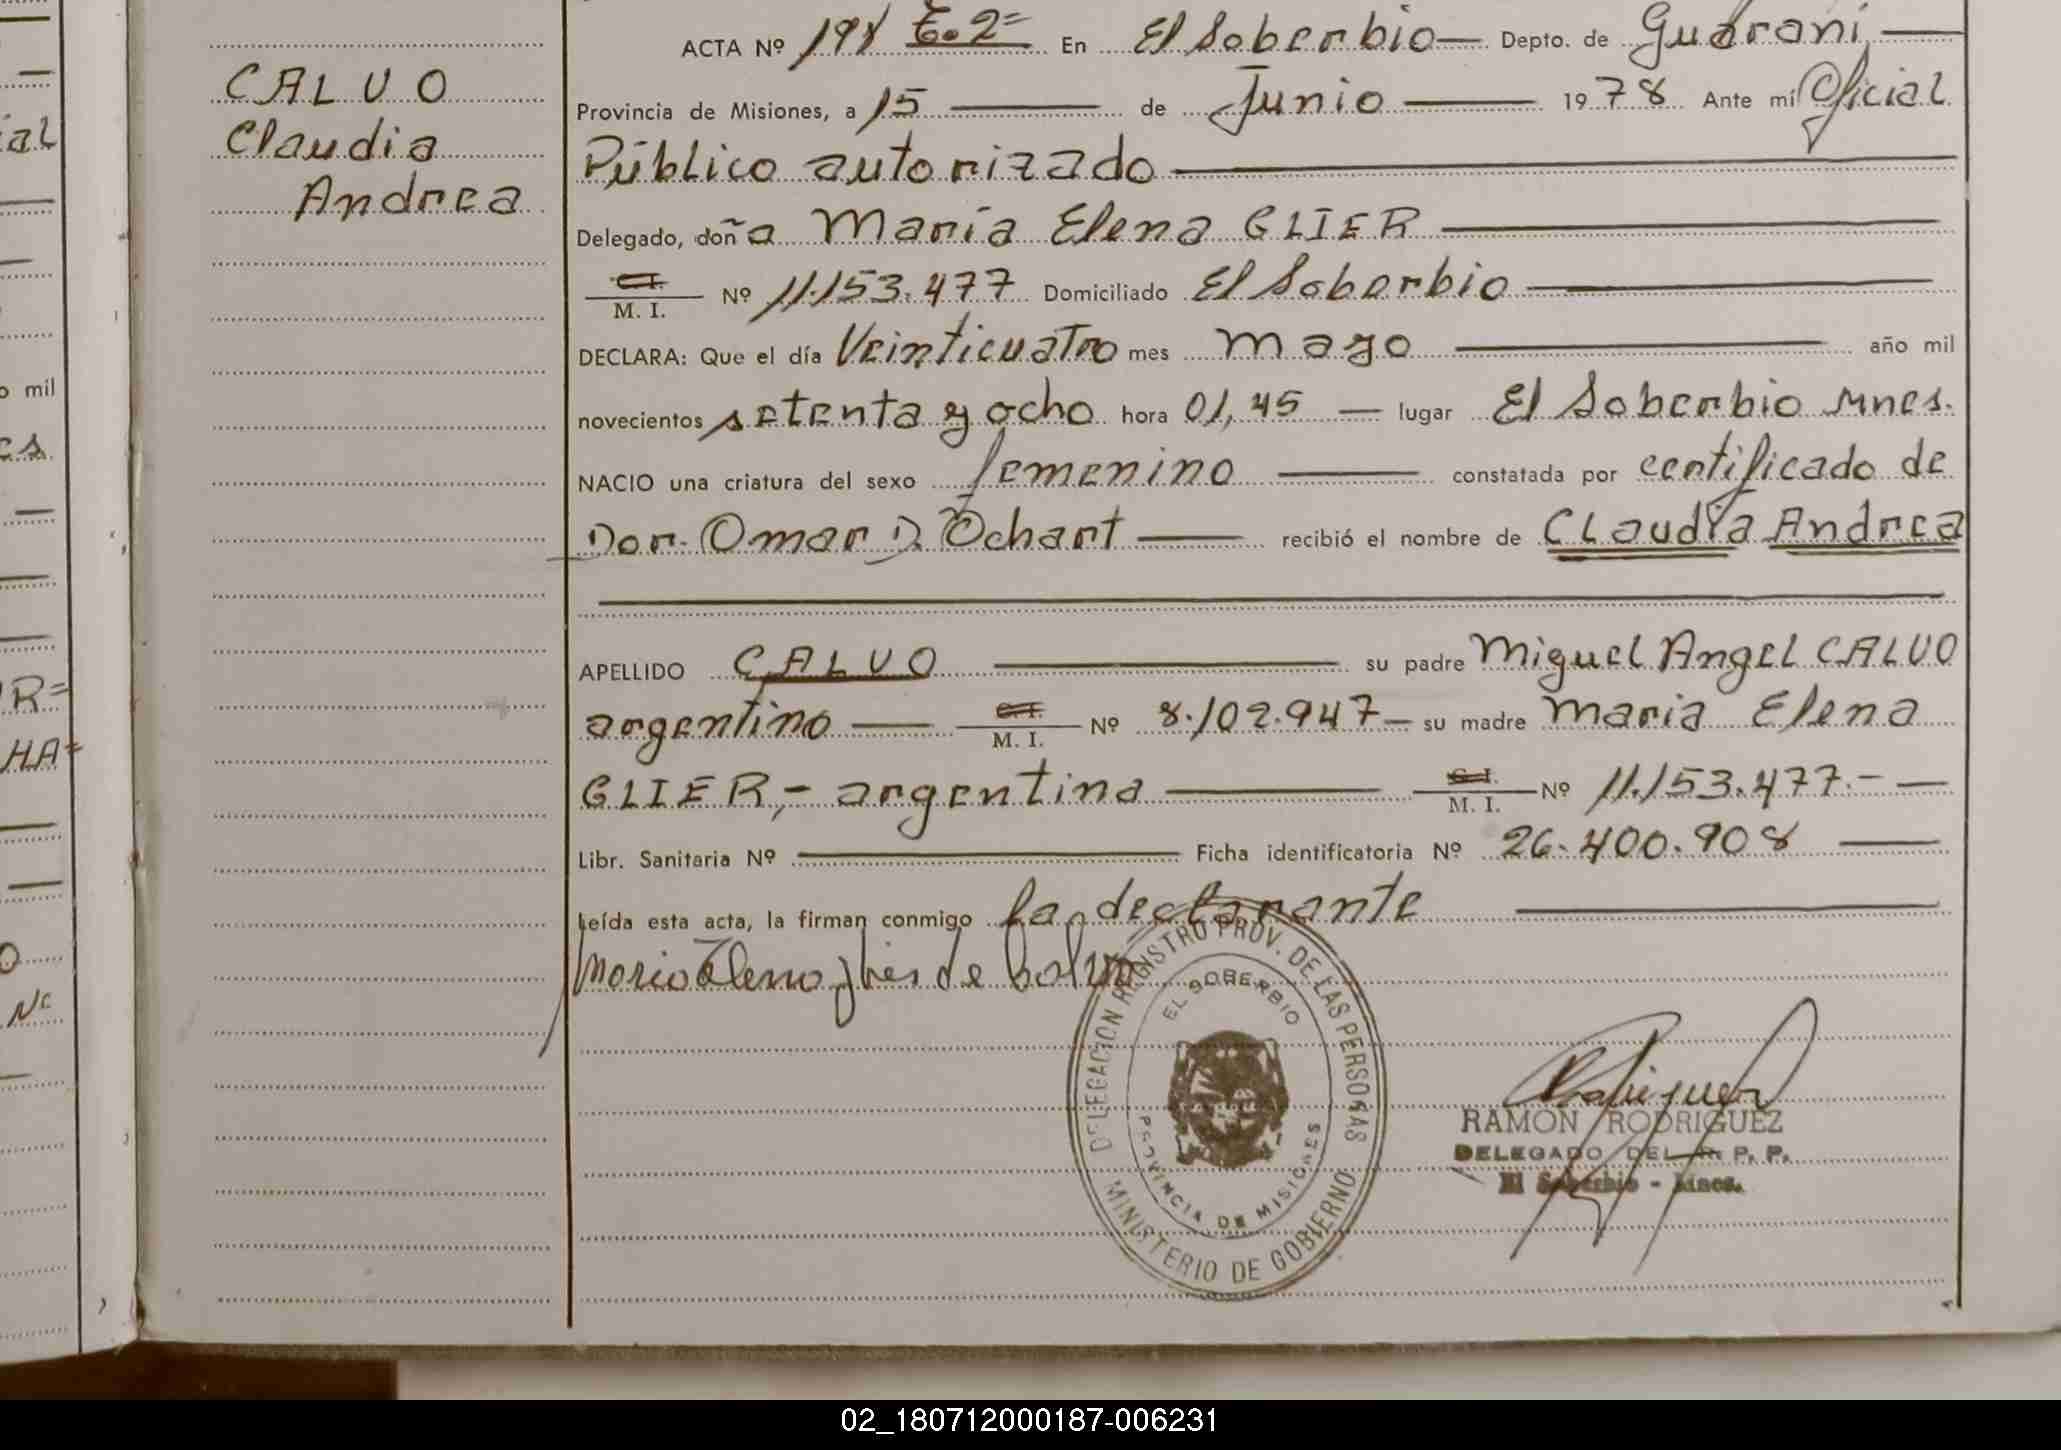 CALVO
Claudia
Andrea
ACTA Nº 191 To. 2= En El Soberbio Depto. de Guaraní
Provincia de Misiones, a 15 de Junio 1978 Ante mí Oficial
Público autorizado
Delegado, doña María Elena GLIER
C.I.
M. I. Nº 11.153.477 Domiciliado El Soberbio
DECLARA: Que el día Veinticuatro mes mayo año mil
novecientos setenta y ocho hora 01,45 lugar El Soberbio Mnes.
NACIO una criatura del sexo femenino constatada por certificado de
Dor. Omar D. Ochart recibió el nombre de Claudia Andrea
APELLIDO CALVO su padre Miguel Angel CALVO
argentino C.I. M. I. Nº 8.102.947 su madre Maria Elena
GLIER,- argentina C.I. M. I. Nº 11.153.477.-
Libr. Sanitaria Nº Ficha identificatoria Nº 26.400.908
Leída esta acta, la firman conmigo la declarante
Maria Elena Glier de Calvo
DELEGACION REGISTRO PROV. DE LAS PERSONAS
EL SOBERBIO
PROVINCIA DE MISIONES
MINISTERIO DE GOBIERNO
Rodriguez
RAMON RODRIGUEZ
DELEGADO DEL R. P. P.
El Soberbio - Mnes.
ial
o mil
es.
R=
HA=
O
Nº
02_180712000187-006231